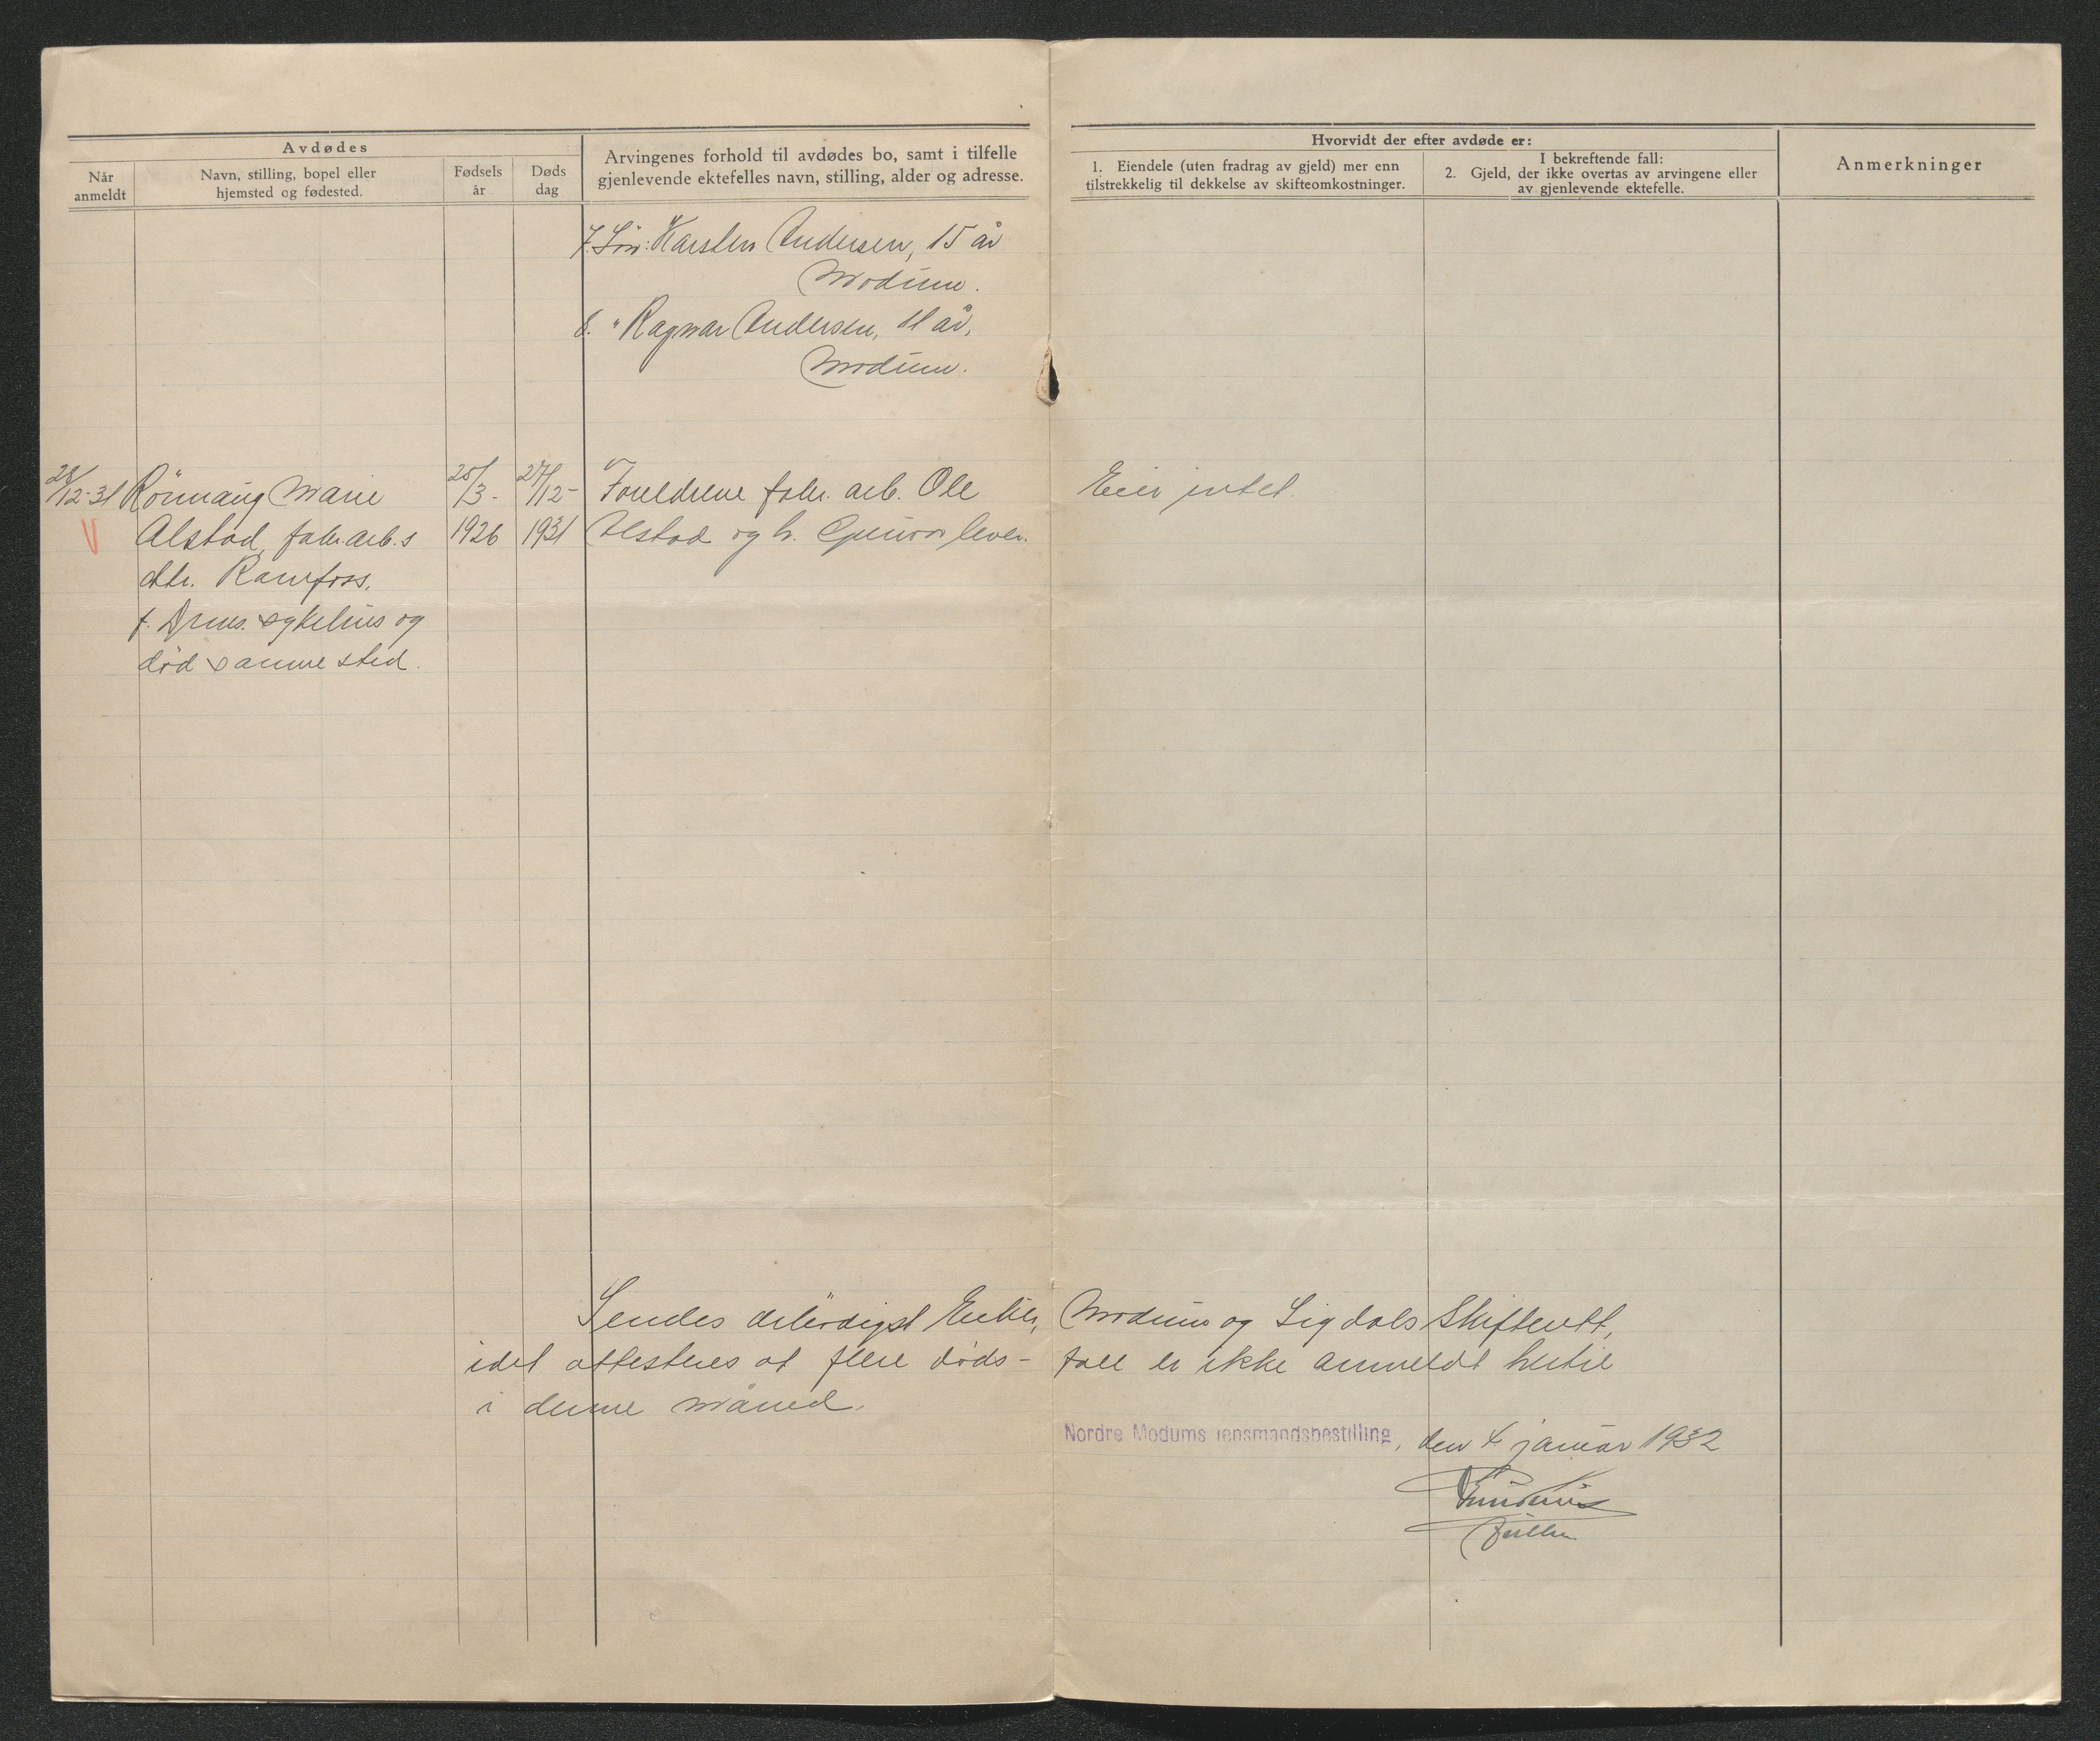 Avdødes
Når anmeldt
Navn, stilling, bopel eller
hjemsted og fødested.
Fødsels
år
Døds
dag
Arvingenes forhold til avdødes bo, samt i tilfelle
gjenlevende ektefelles navn, stilling, alder og adresse.
Hvorvidt der efter avdøde er:
1. Eiendele (uten fradrag av gjeld) mer enn
tilstrekkelig til dekkelse av skifteomkostninger.
I bekreftende fall:
2. Gjeld, der ikke overtas av arvingene eller
av gjenlevende ektefelle.
Anmerkninger
7. Søn: Karsten Andersen, 15 år
Modum.
8. " Ragnar Andersen, 11 år,
Modum.
28/12-31 Rönnaug Marie
Alstad, fabr. arb.s
dtr. Ramfoss,
f. Drms. sykehus og
død samme sted.
25/3-
1926
27/12-
1931
Foreldrene fabr. arb. Ole
Alstad og h. Gunvor lever.
Eier intet.
Sendes ærbödigst Eiker, Modum og Sigdals Skifterett,
idet attesteres at flere døds- fall er ikke anmeldt hertil
i denne måned.
Nordre Modums lensmandsbestilling, den 4. januar 1932